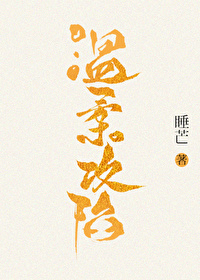 温柔攻陷
睡芒 著